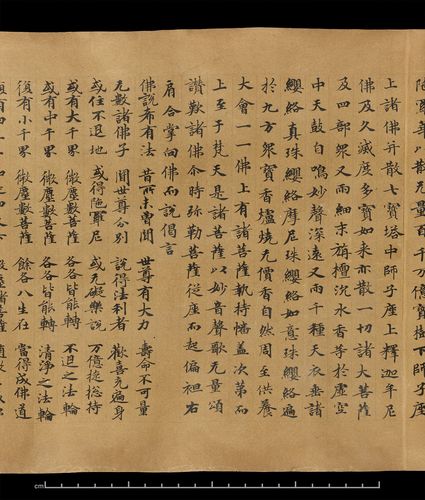 陁羅華以散无量百千万億寶樹下師子座
上諸佛并散七寶塔中師子座上釋迦牟尼
佛及久滅度多寶如來亦散一切諸大菩薩
及四部衆又雨細末栴檀沉水香等於虛空
中天鼓自鳴妙聲深遠又雨千種天衣垂諸
纓絡真珠纓絡摩尼珠纓絡如意珠纓絡遍
於九方衆寶香爐燒无價香自然周至供養
大會一一佛上有諸菩薩執持幡蓋次第而
上至于梵天是諸菩薩以妙音聲歌无量頌
讚歎諸佛尒時弥勒菩薩從座而起偏袒右
肩合掌向佛而說偈言
佛說希有法 昔所未曽聞 世尊有大力 壽命不可量
无數諸佛子 聞世尊分別 說得法利者 歡喜充遍身
或住不退地 或得陁羅尼 或无礙樂說 万億旋捴持
或有大千界 微塵數菩薩 各各皆能轉 不退之法輪
或有中千界 微塵數菩薩 各各皆能轉 清淨之法輪
復有小千界 微塵數菩薩 餘各八生在 當得成佛道